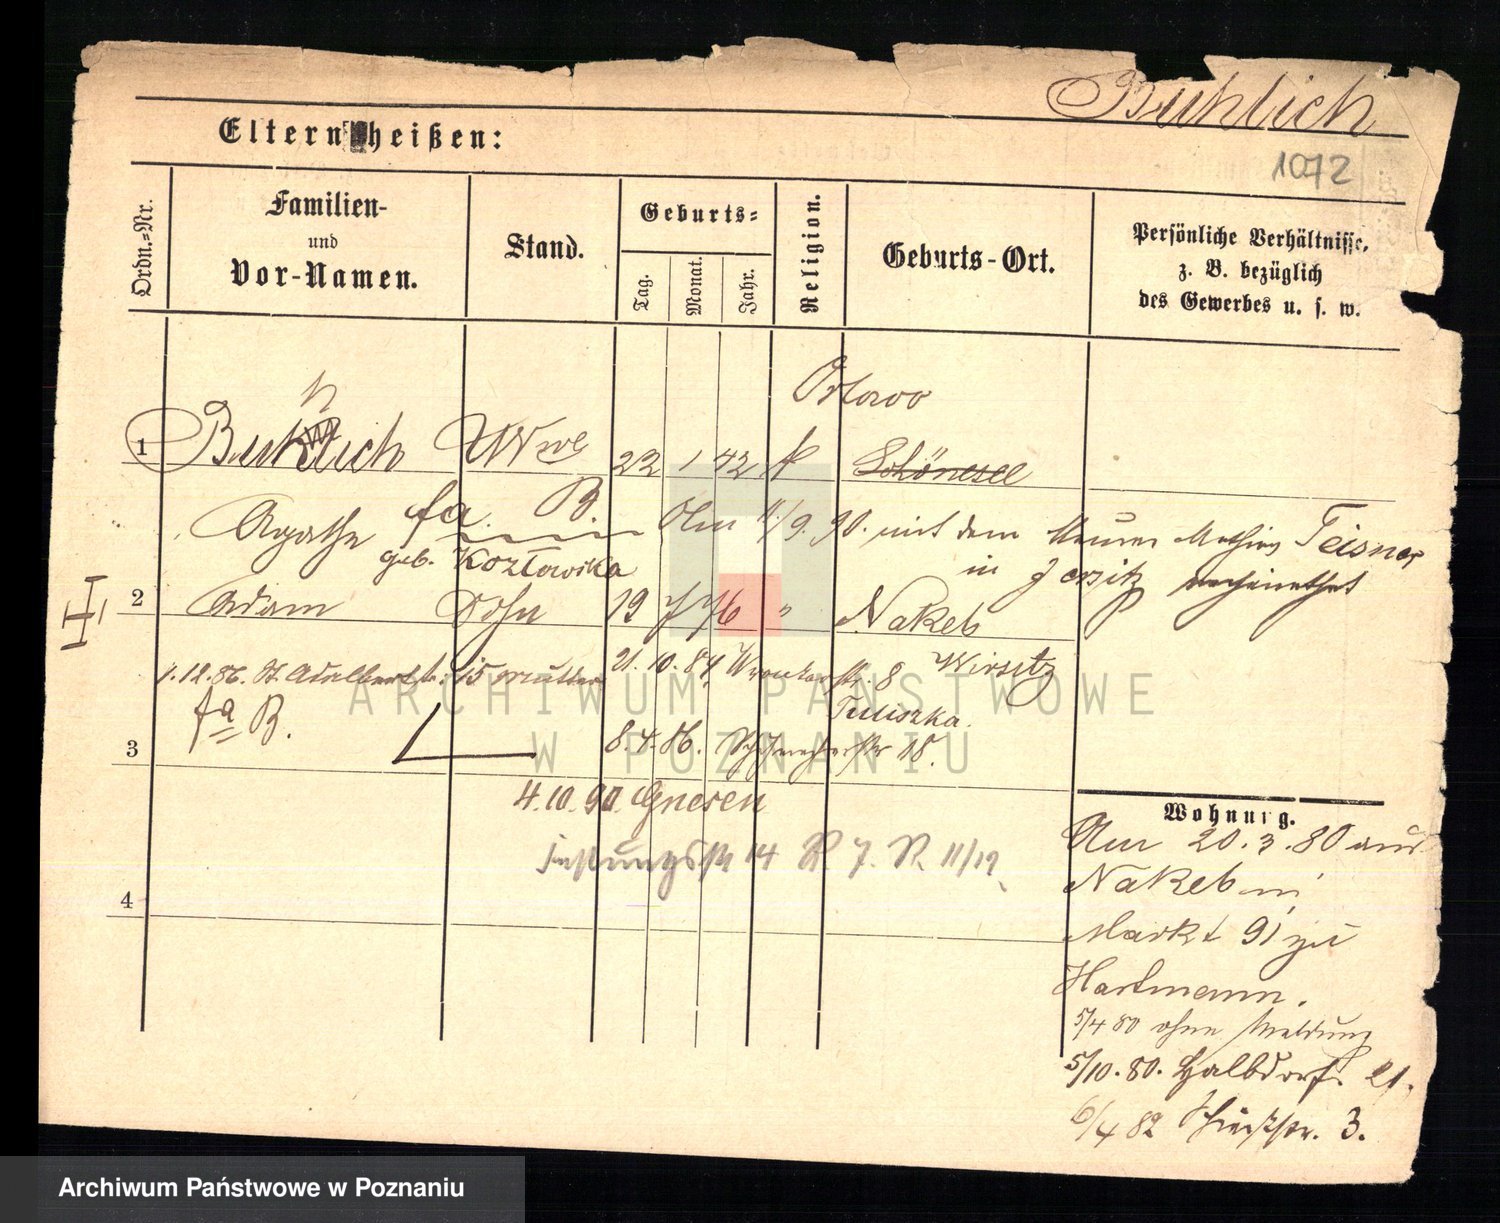 Buhlich
Eltern heißen:
1072
Ordn.=Nr.
Familien-
und
Vor-Namen.
Stand.
Geburts=
Tag.
Monat.
Jahr.
Religion.
Geburts-Ort.
Persönliche Verhältnisse,
z. B. bezüglich
des Gewerbes u. s. w.
Orlowo
1 Wwe 22 1 42 k Schönesee
Agathe fa. B. Am 11/9. 90. mit dem Maurer Mathias Teisner
geb. Kozłowska in Jersitz verheirathet
2 Adam Sohn 19 7 76 " Nakel
1.12.86. St. Adalbertstr. 15 Mutter 21. 10. 84 Wronkerstr. 8 Wirsitz
fa B. Tuliszka.
3 8. 4. 86. 18.
4. 10. 90. Gnesen
14 R 7. 11/12
4
Wohnung.
Am 20. 3. 80 aus
Nakel
Markt 91 zu
Hartmann.
5/4 80 ohne Meldung
5/10. 80. Halbdorfs 21.
6/4 82 3.
ARCHIWUM PAŃSTWOWE
W POZNANIU
Archiwum Państwowe w Poznaniu